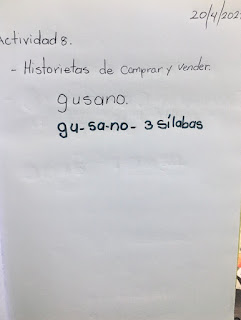 20/4/202
Actividad 8.
- Historietas de Comprar y vender.
gusano.
gu-sa-no- 3 sílabas